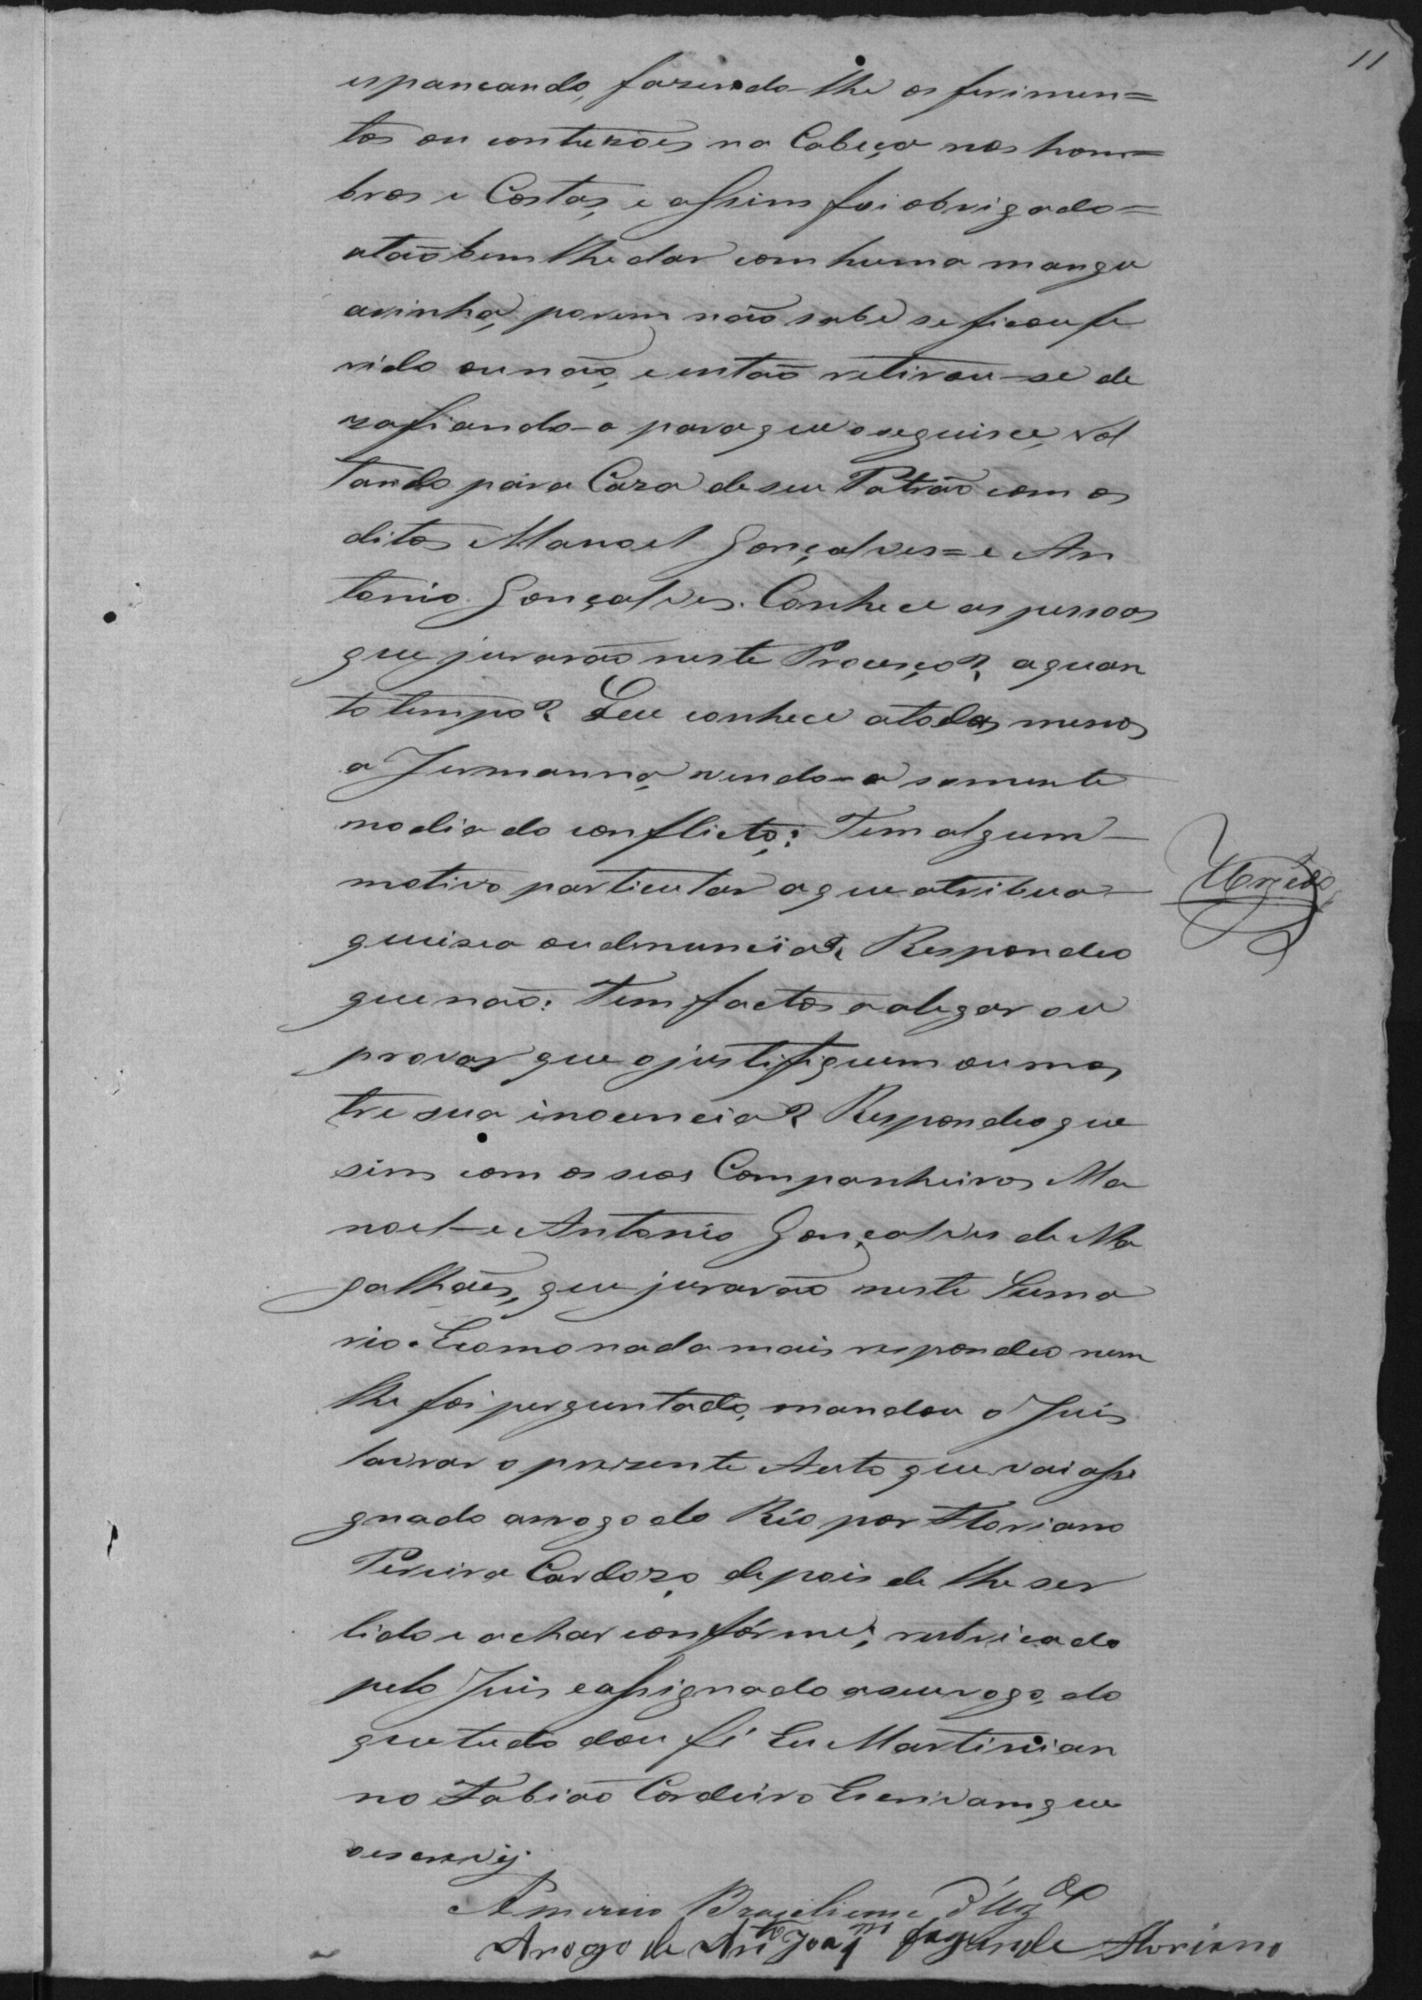 11
espancando, fazendo-lhe os ferimen=
tos ou contuzões na Cabeça nos hom=
bros e Costas, e assim foi obrigado=
ataõbem lhe dar com huma mangu
arinha, porem não sabe se ficou fe
rido ou não, e então retirou-se de
zafiando-o para que o seguisce, vol
tando para Caza de seu Patrão com os
ditos Manoel Gonçalves = e An
tonio Gonçalves. Conhece as pessoas
que jurarão neste Proceuço?, a quan
to tempo? Que conhece a todos menos
a Jermanna, vendo-a somente
no dia do conflicto; Tem algum
motivo particular a que atribua
queixa ou denuncia? Respondeo
que não: Tem factos a alegar ou
provar que o justifiquem ou mos
tre sua inocencia? Respondeo que
sim com os seos Companheiros Ma
noel e Antonio Gonçalves de Ma
galhães, que jurarão neste Suma
rio. E como nada mais respondeo nem
lhe foi perguntado, mandou o Juis
lavrar o prezente Auto que vai assi
gnado arrogo do Rèo por Floriano
Pereira Cardozo depois de lhe ser
lido e achar confórme; rubricado
pelo Juis e assignado a seu rogo, do
que tudo dou fé Eu Martinian
no Fabião Cordeiro Escrivam que
oescrevij
Americo Braziliense d'
Arogo de Antº Joaqm Fagunde Floriano